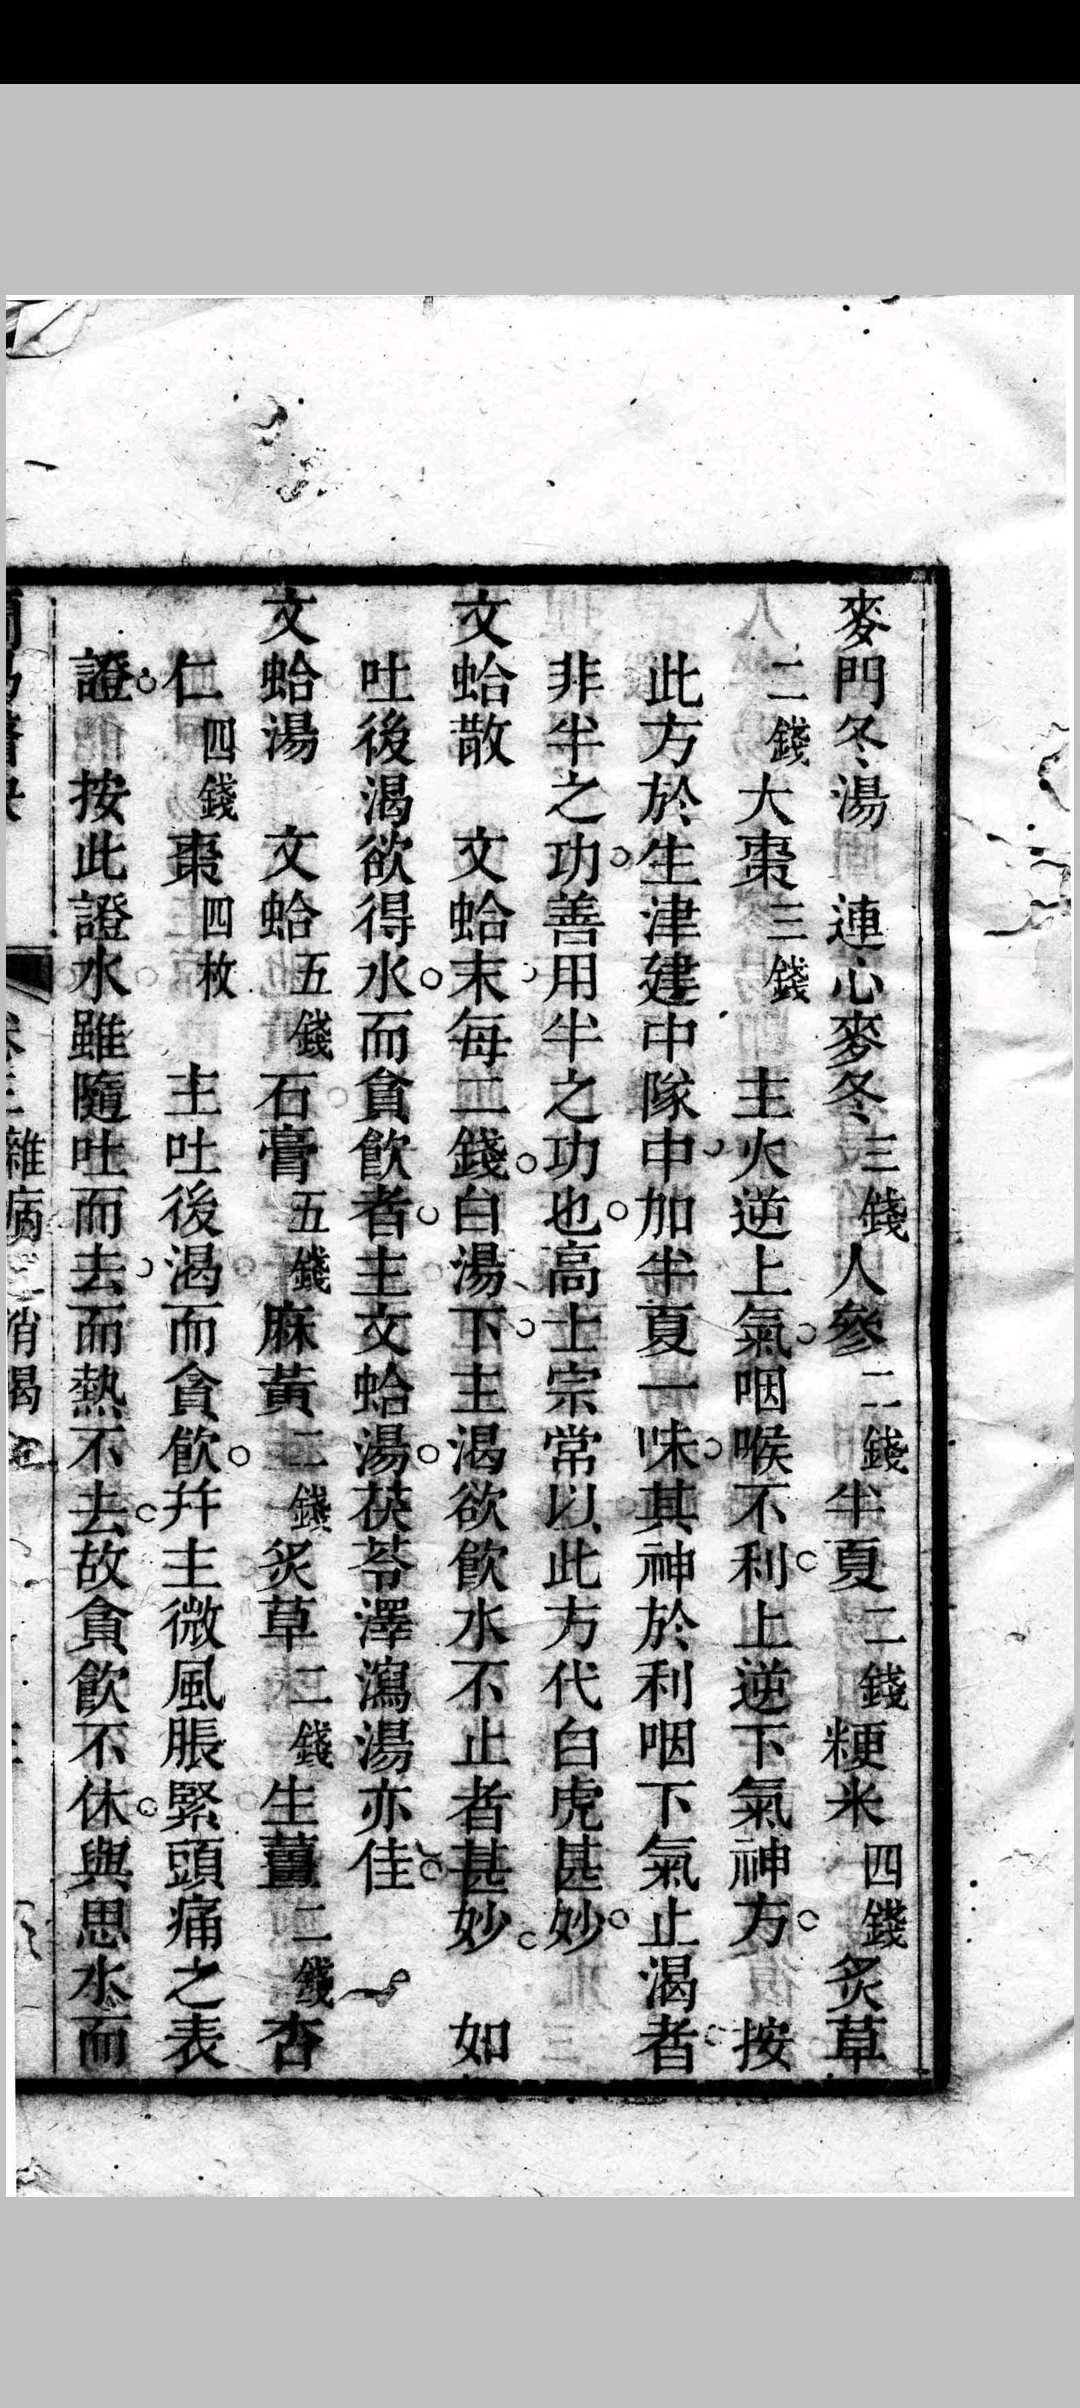 麥門冬湯　連心麥冬三錢人參二錢半夏二錢粳米四錢炙草
二錢大棗三錢　主火逆上氣咽喉不利上逆下氣神方　按
此方於生津建中隊中加半夏一味其神於利咽下氣止渴者
非半之功善用半之功也高士宗常以此方代白虎甚妙
文蛤散　文蛤末每二錢白湯下主渴欲飲水不止者甚妙　如
吐後渴欲得水而貪飲者主文蛤湯茯苓澤瀉湯亦佳
文蛤湯　文蛤五錢石膏五錢麻黃二錢炙草二錢生薑二錢杏
仁四錢棗四枚　主吐後渴而貪飲幷主微風脹緊頭痛之表
證　按此證水雖隨吐而去而熱不去故貪飲不休與思水而
雜病　消渴